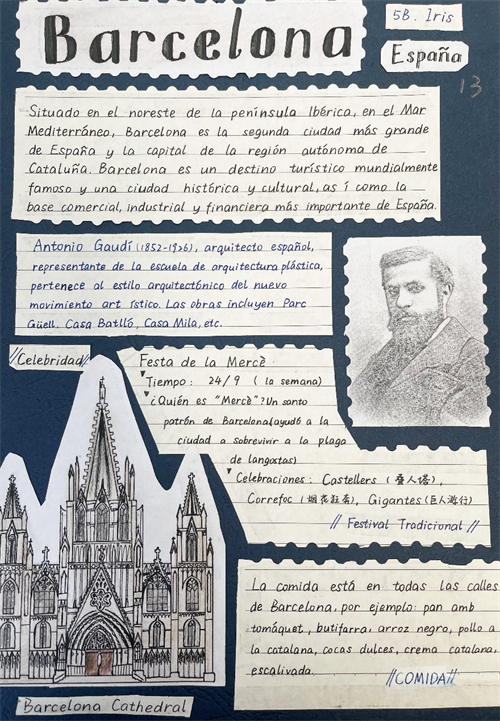 Barcelona
5B. Iris
España
13
Situado en el noreste de la península Ibérica, en el Mar
Mediterráneo, Barcelona es la segunda ciudad más grande
de España y la capital de la región autónoma de
Cataluña. Barcelona es un destino turístico mundialmente
famoso y una ciudad histórica y cultural, as í como la
base comercial, industrial y financiera más importante de España.
Antonio Gaudí (1852-1926), arquitecto español,
representante de la escuela de arquitectura plástica,
pertenece al estilo arquitectónico del nuevo
movimiento art ístico. Las obras incluyen Parc
Güell, Casa Batlló, Casa Mila, etc.
//Celebridad//
Festa de la Mercè
Tiempo: 24/9 ( la semana)
¿Quién es "Mercè"? Un santo
patrón de Barcelona(ayudó a la
ciudad a sobrevivir a la plaga
de langostas)
Celebraciones: Castellers (叠人塔),
Correfoc (烟花狂奔), Gigantes(巨人游行)
// Festival Tradicional //
La comida está en todas las calles
de Barcelona, por ejemplo: pan amb
tomàquet, butifarra, arroz negro, pollo a
la catalana, cocas dulces, crema catalana,
escalivada.
//COMIDA//
Barcelona Cathedral